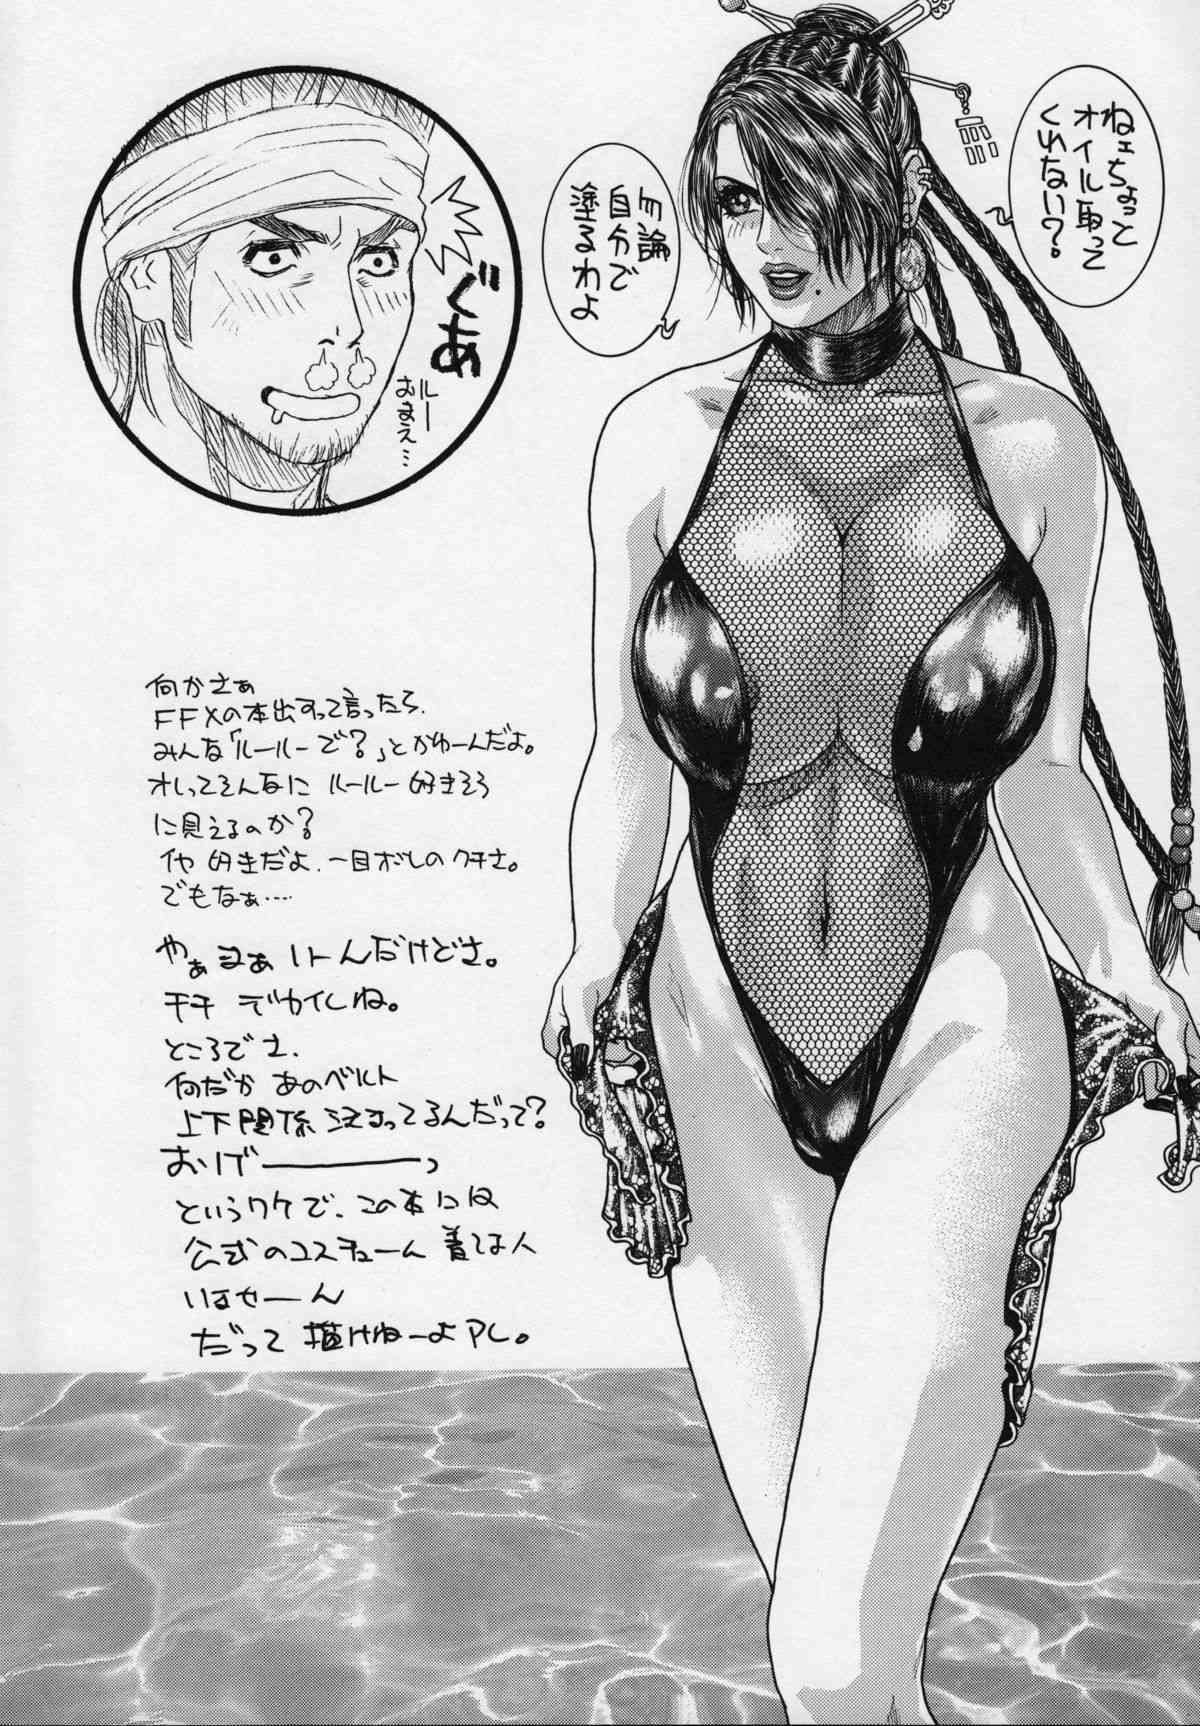 ねェちょっと
オイル取って
くれない?
勿論
自分で
塗るわよ
ぐあ
ルー
おまえ…
何かさぁ
FFXの本出すって言ったら、
みんな「ルールーで?」とかゆーんだよ。
オレってそんなに ルールー 好きそう
に見えるのか?
イヤ 好きだよ、一目ボレのクチさ。
でもなぁ……
やぁまぁ いーんだけどさ。
チチ デカイしね。
ところでさ、
何だか あのベルト
上下関係 決まってるんだって?
おげーーーーっ
というワケで、この本には
公式のコスチューム 着てる人
いませーん
だって 描けねーよアレ。